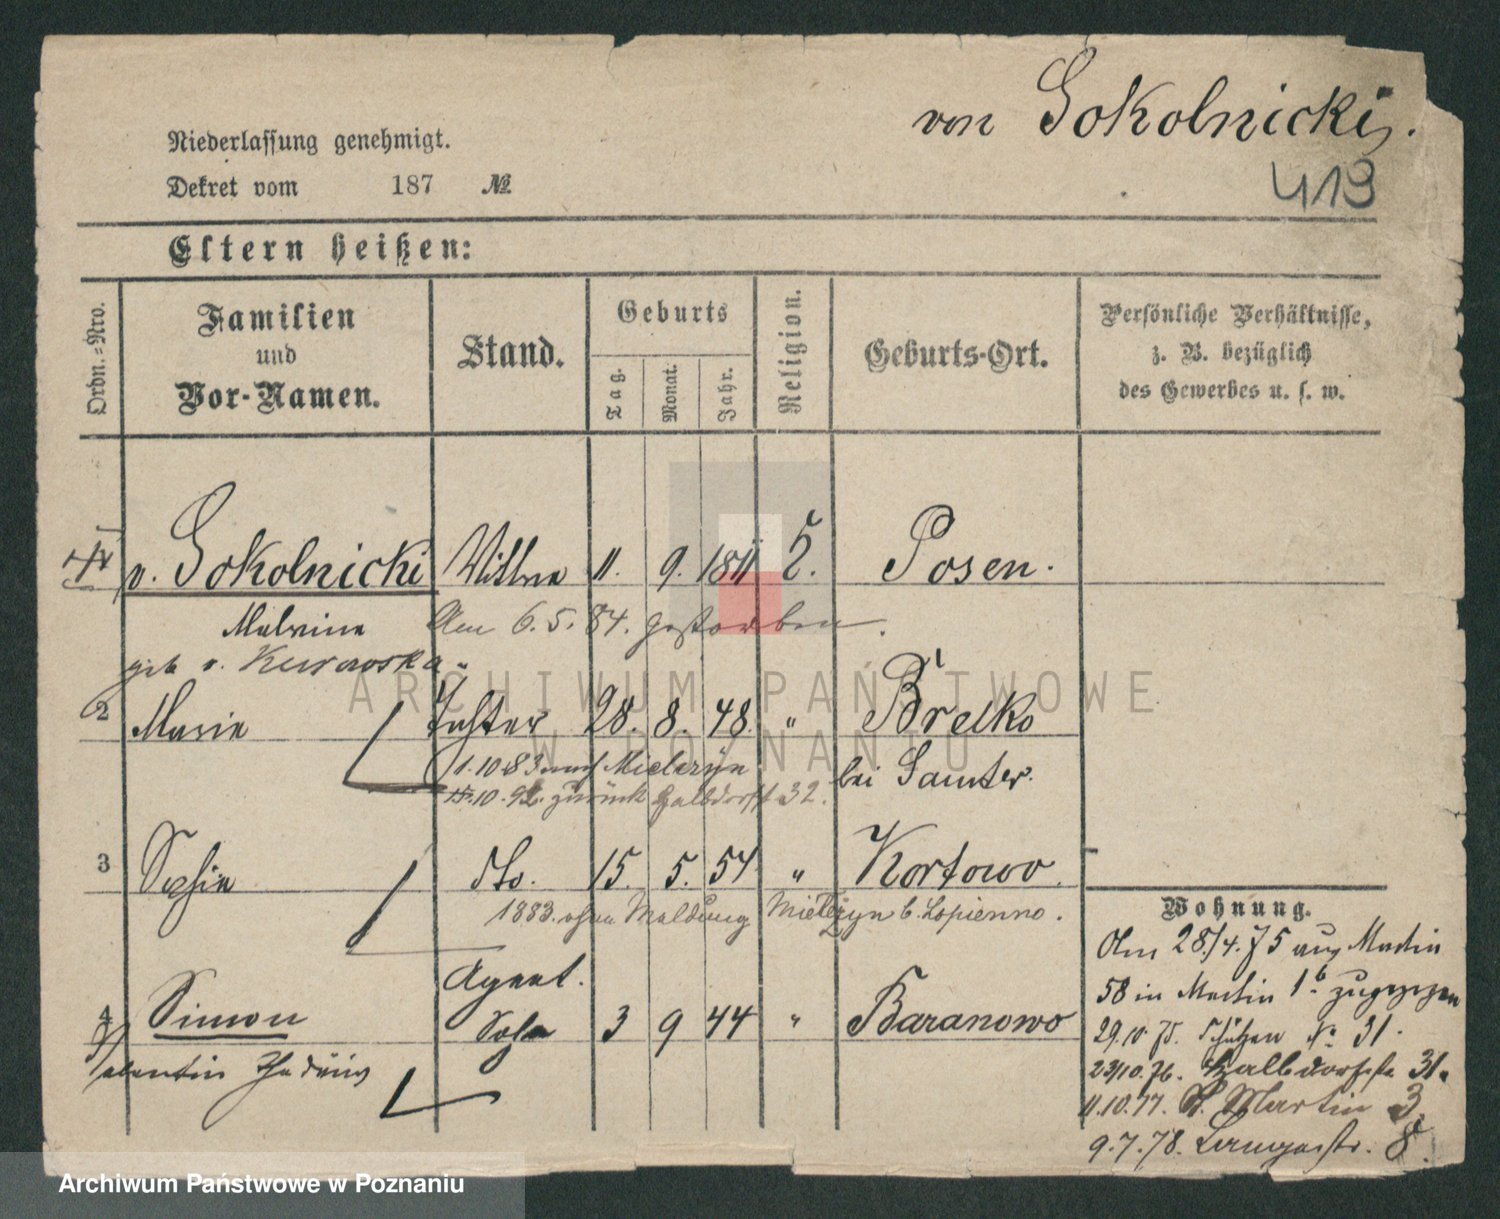 von Sokolnicki.
413
Niederlassung genehmigt.
Dekret vom 187 №
Eltern heißen:
Ordn.=Nro.
Familien
und
Vor-Namen.
Stand.
Geburts
Tag.
Monat.
Jahr.
Religion.
Geburts-Ort.
Persönliche Verhältnisse,
z. B. bezüglich
des Gewerbes u. s. w.
v. Sokolnicki Wittwe 11. 9. 1811 Posen.
Malwina Am 6.5.84. gestorben.
geb v. Kurowska
2 Marie Tochter 28. 8. 48. " Brelko
bei Samter.
1.10.83 nach Mielczyn
10.92. zurück Halbdorfst 32.
3 Sofia dto. 15. 5. 54 " Kortowo.
1883. ohne Meldung Mielczyn b. Lopienno.
4 Simon Agent. Sohn 3 9 44 " Baranowo
Wohnung.
Am 28./4. 75 aus Martin
58 in Martin 1b zugezogen
29.10.75. Schützen № 31.
23/10.76. Halbdorfstr 31.
11.10.77. St. Martin 3.
9.7.78. Langestr. 8.
ARCHIWUM PAŃSTWOWE
W POZNANIU
Archiwum Państwowe w Poznaniu